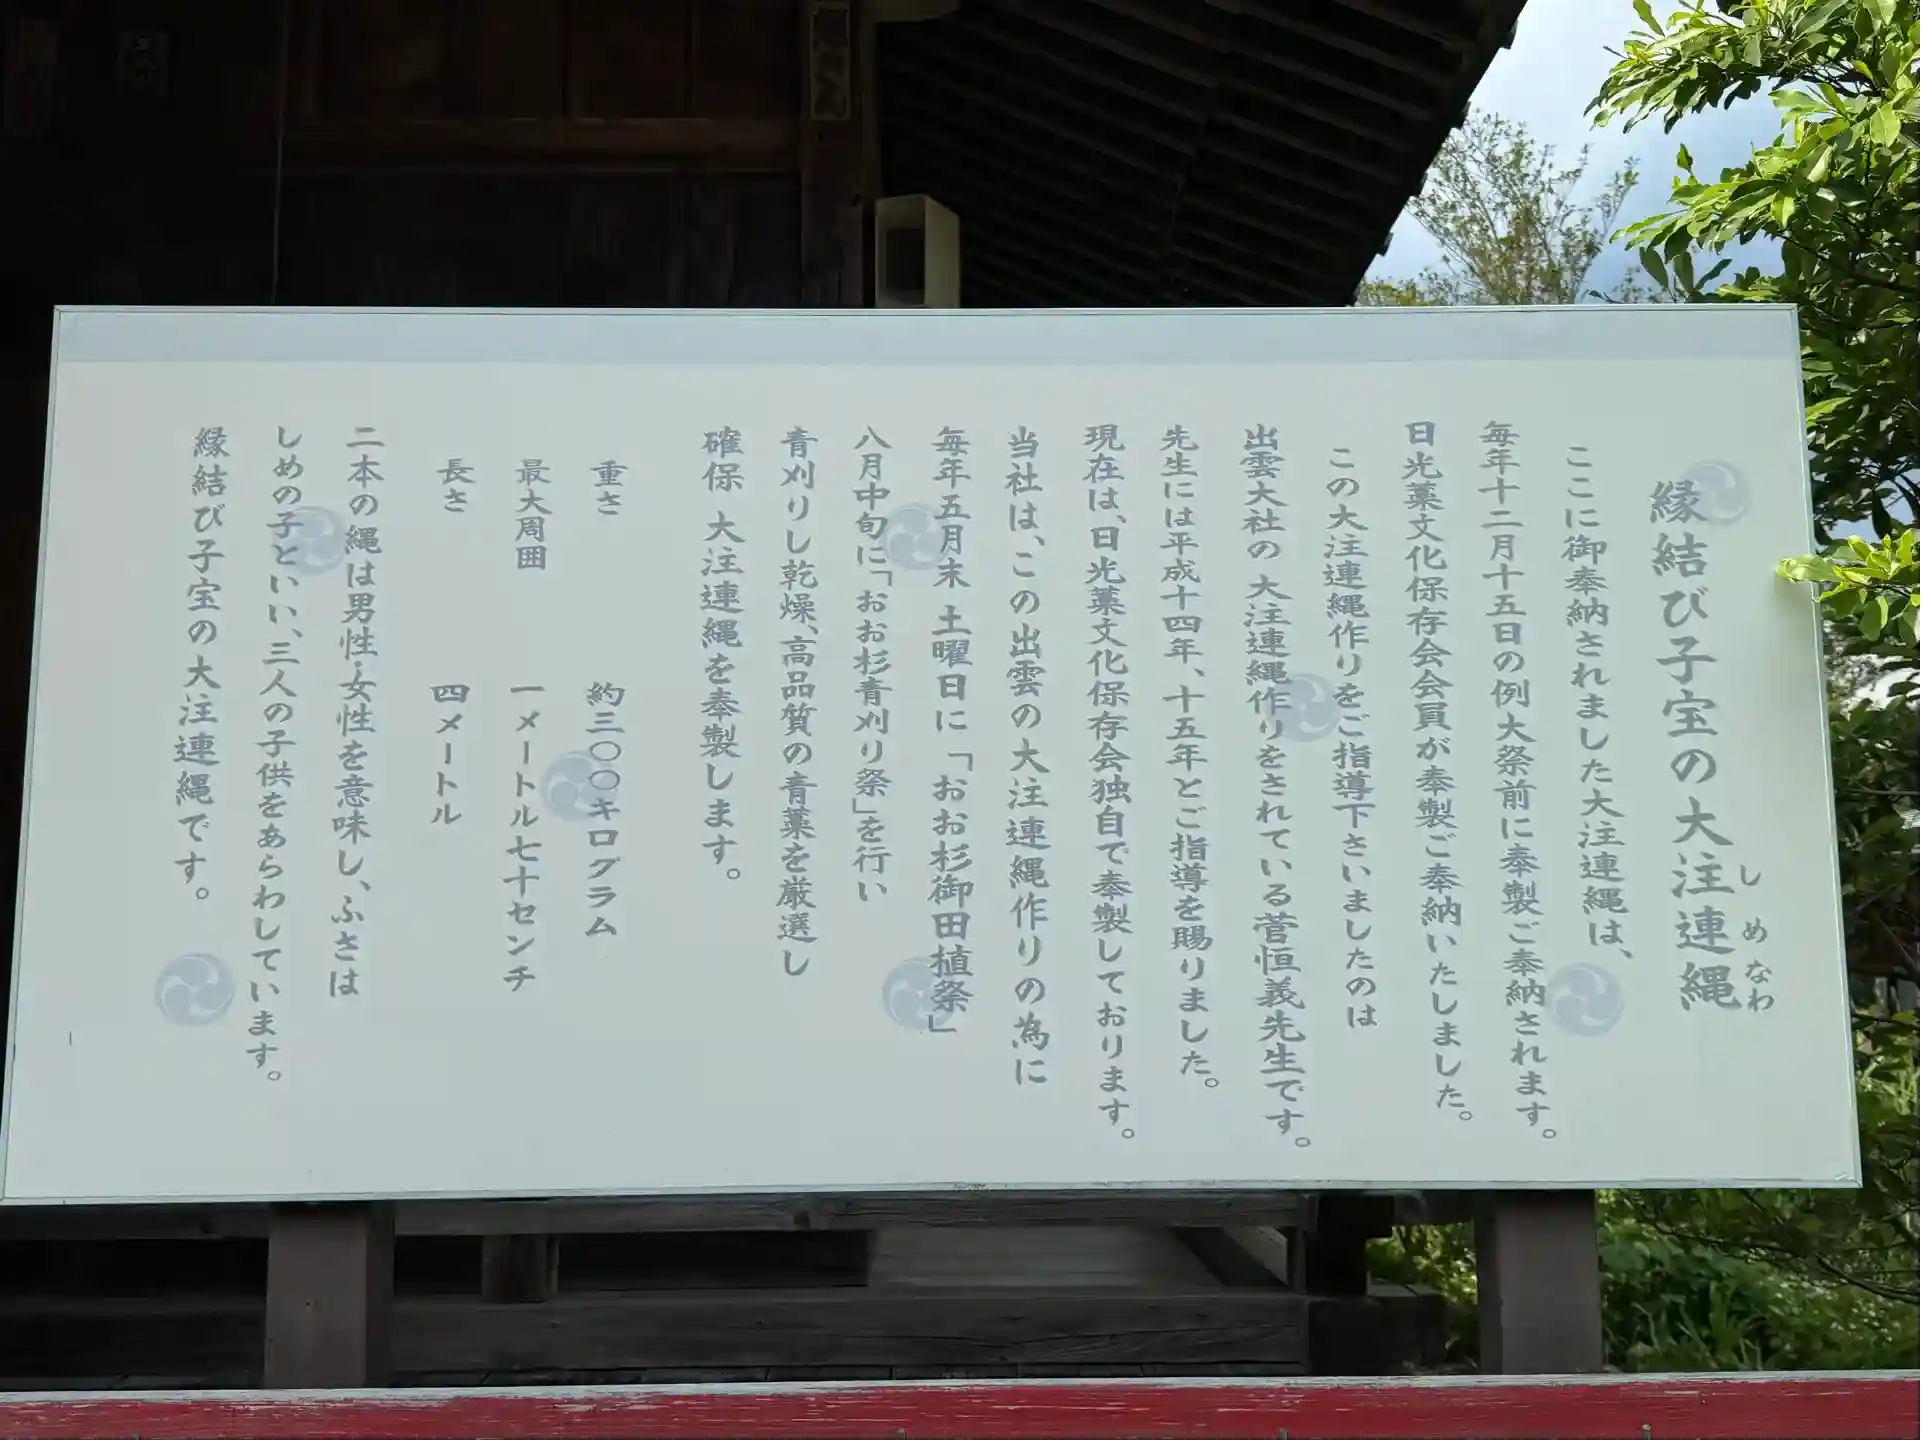 縁結び子宝の大注連縄
しめなわ
ここに御奉納されました大注連縄は、
毎年十二月十五日の例大祭前に奉製ご奉納されます。
日光藁文化保存会会員が奉製ご奉納いたしました。
この大注連縄作りをご指導下さいましたのは
出雲大社の大注連縄作りをされている菅恒義先生です。
先生には平成十四年、十五年とご指導を賜りました。
現在は、日光藁文化保存会独自で奉製しております。
当社は、この出雲の大注連縄作りの為に
毎年五月末土曜日に「おお杉御田植祭」
八月中旬に「おお杉青刈り祭」を行い
青刈りし乾燥、高品質の青藁を厳選し
確保 大注連縄を奉製します。
重さ 約三〇〇キログラム
最大周囲 一メートル七十センチ
長さ 四メートル
二本の縄は男性・女性を意味し、ふさは
しめの子といい、三人の子供をあらわしています。
縁結び子宝の大注連縄です。